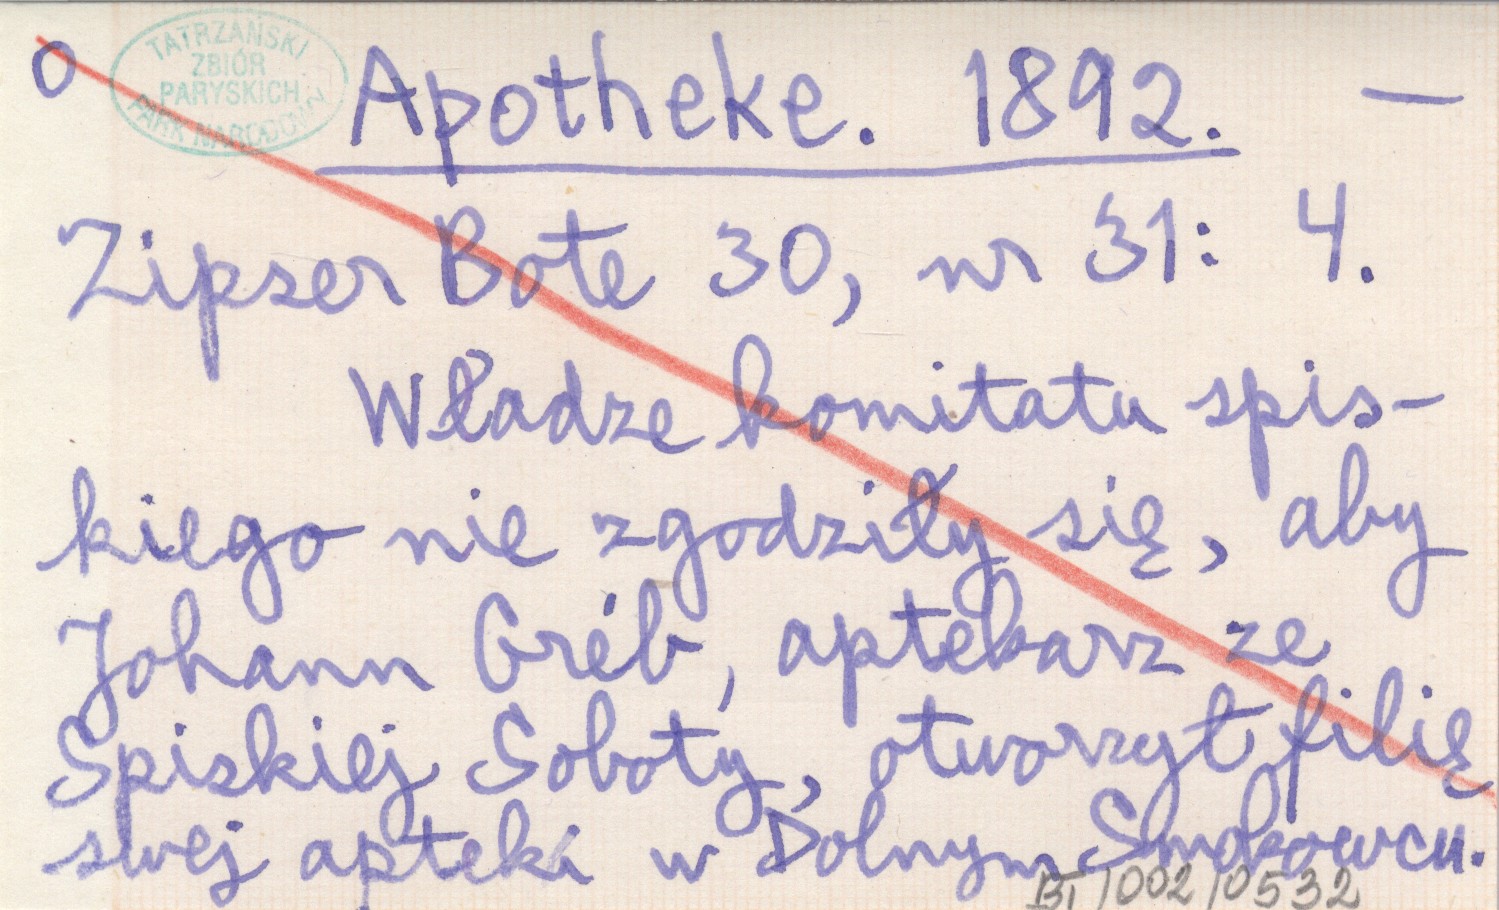 O
TATRZAŃSKI
ZBIÓR
PARYSKICH
PARK NARODOWY
Apotheke. 1892. —
Zipser Bote 30, nr 31: 4.
Władze komitatu spis-
kiego nie zgodziły się, aby
Johann Gréb, aptekarz ze
Spiskiej Soboty, otworzył filię
swej apteki w Dolnym Smokowcu.
BT/002/0532